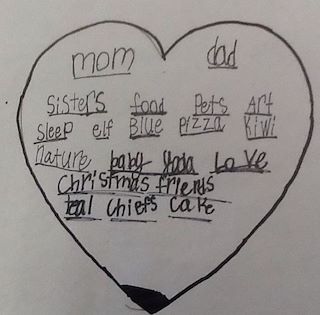 mom dad
Sisters food Pets Art
Sleep elf Blue pizza Kiwi
Nature baby Yoda Love
Christmas friends
teal Chiefs Cake